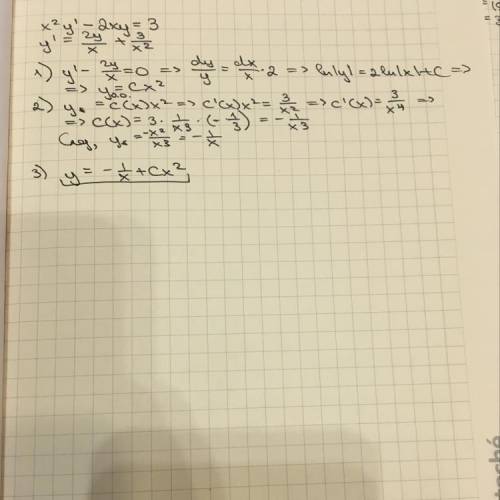 x²y' - 2xy = 3
y' = 2y/x + 3/x²
1) y' - 2y/x = 0 => dy/y = dx/x · 2 => ln|y| = 2ln|x| + C =>
=> y₀.₀. = Cx²
2) yₓ = C(x)x² => C'(x)x² = 3/x² => C'(x) = 3/x⁴ =>
=> C(x) = 3 · 1/x³ · (-1/3) = -1/x³
След, yₓ = -x²/x³ = -1/x
3) y = -1/x + Cx²
ché